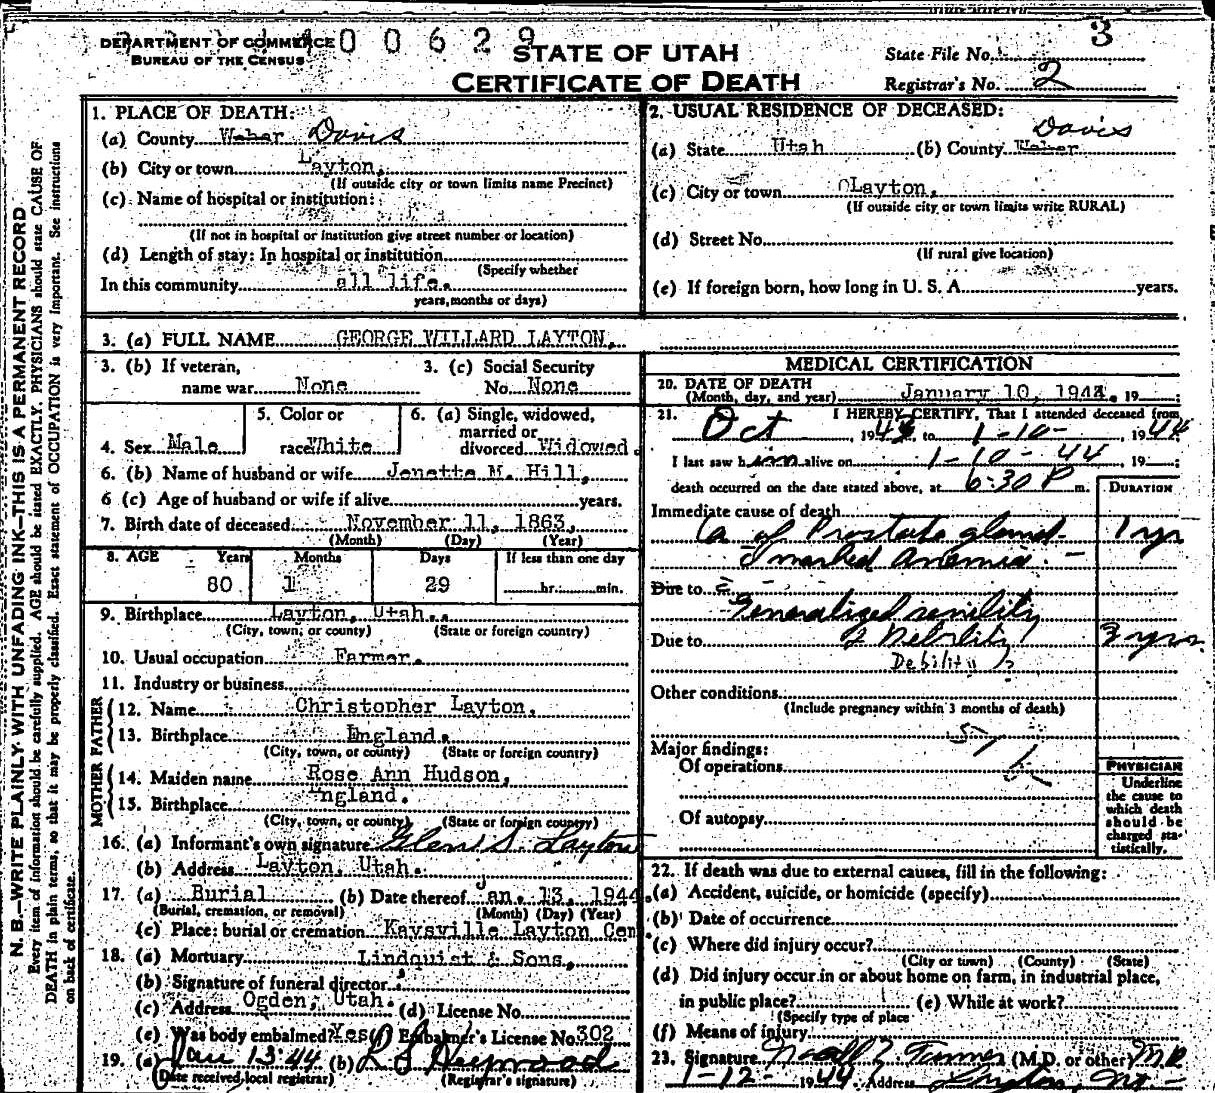 DEPARTMENT OF COMMERCE
BUREAU OF THE CENSUS
00629
STATE OF UTAH
CERTIFICATE OF DEATH
State File No. 3
Registrar's No. 2
N. B.—WRITE PLAINLY WITH UNFADING INK—THIS IS A PERMANENT RECORD
Every item of information should be carefully supplied. AGE should be stated EXACTLY. PHYSICIANS should state CAUSE OF
DEATH in plain terms, so that it may be properly classified. Exact statement of OCCUPATION is very important. See instructions
on back of certificate.
1. PLACE OF DEATH:
(a) County Weber Davis
(b) City or town Layton,
(If outside city or town limits name Precinct)
(c) Name of hospital or institution:
(If not in hospital or institution give street number or location)
(d) Length of stay: In hospital or institution
(Specify whether
In this community all life.
years, months or days)
2. USUAL RESIDENCE OF DECEASED:
Davis
(a) State Utah (b) County Weber
(c) City or town Layton.
(If outside city or town limits write RURAL)
(d) Street No.
(If rural give location)
(e) If foreign born, how long in U. S. A. years.
3. (a) FULL NAME GEORGE WILLARD LAYTON,
3. (b) If veteran, name war None
3. (c) Social Security No. None
4. Sex Male
5. Color or race White
6. (a) Single, widowed, married or divorced Widowed.
6. (b) Name of husband or wife Jenette M. Hill,
6 (c) Age of husband or wife if alive years.
7. Birth date of deceased November 11, 1863,
(Month) (Day) (Year)
8. AGE Years Months Days If less than one day
80 1 29 hr. min.
9. Birthplace Layton, Utah.
(City, town, or county) (State or foreign country)
10. Usual occupation Farmer.
11. Industry or business
FATHER
12. Name Christopher Layton,
13. Birthplace England.
(City, town, or county) (State or foreign country)
MOTHER
14. Maiden name Rose Ann Hudson,
15. Birthplace England.
(City, town, or county) (State or foreign country)
16. (a) Informant's own signature Glen S. Layton
(b) Address Layton, Utah.
17. (a) Burial (b) Date thereof Jan. 13, 1944.
(Burial, cremation, or removal) (Month) (Day) (Year)
(c) Place: burial or cremation Kaysville Layton Cem.
18. (a) Mortuary Lindquist & Sons,
(b) Signature of funeral director
(c) Address Ogden, Utah. (d) License No.
(e) Was body embalmed? Yes (f) Embalmer's License No. 302
19. (a) Jan 13 '44 (b) Heywood
(Date received local registrar) (Registrar's signature)
MEDICAL CERTIFICATION
20. DATE OF DEATH
(Month, day, and year) January 10, 1944. 19 ;
21. I HEREBY CERTIFY, That I attended deceased from
Oct, 1943, to 1-10-, 1944
I last saw him alive on 1-10-44 19 ;
death occurred on the date stated above, at 6:30 P m.
DURATION
Immediate cause of death
Ca of Prostate gland - 1 yr
marked Anemia. -
Due to
Generalized senility
Due to & Debility 3 yrs.
Debility?
Other conditions
(Include pregnancy within 3 months of death)
Major findings:
Of operations
Of autopsy
PHYSICIAN
Underline
the cause to
which death
should be
charged sta-
tistically.
22. If death was due to external causes, fill in the following:
(a) Accident, suicide, or homicide (specify)
(b) Date of occurrence
(c) Where did injury occur?
(City or town) (County) (State)
(d) Did injury occur in or about home on farm, in industrial place,
in public place? (e) While at work?
(Specify type of place
(f) Means of injury
23. Signature Tanner (M.D. or other) M.D.
1-12- 1944 Address Layton, Ut -